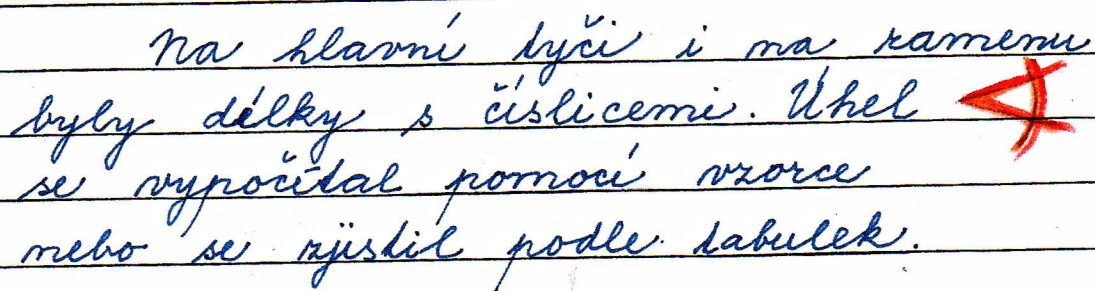 Na hlavní tyči i na ramenu
byly délky s číslicemi. Úhel
se vypočítal pomocí vzorce
nebo se zjistil podle tabulek.